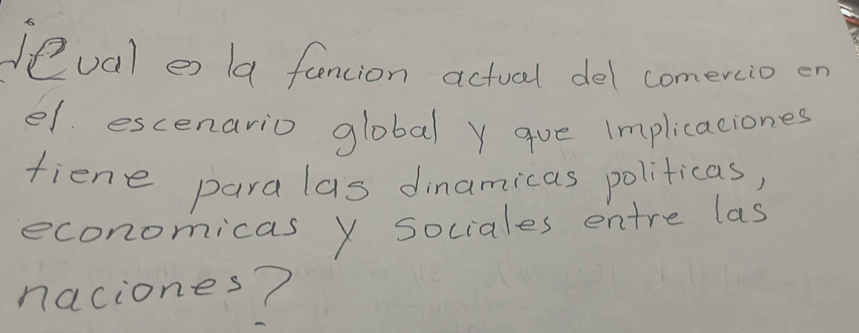 ¿Cual es la funcion actual del comercio en
el. escenario global y que implicaciones
tiene para las dinamicas politicas,
economicas y sociales entre las
naciones?